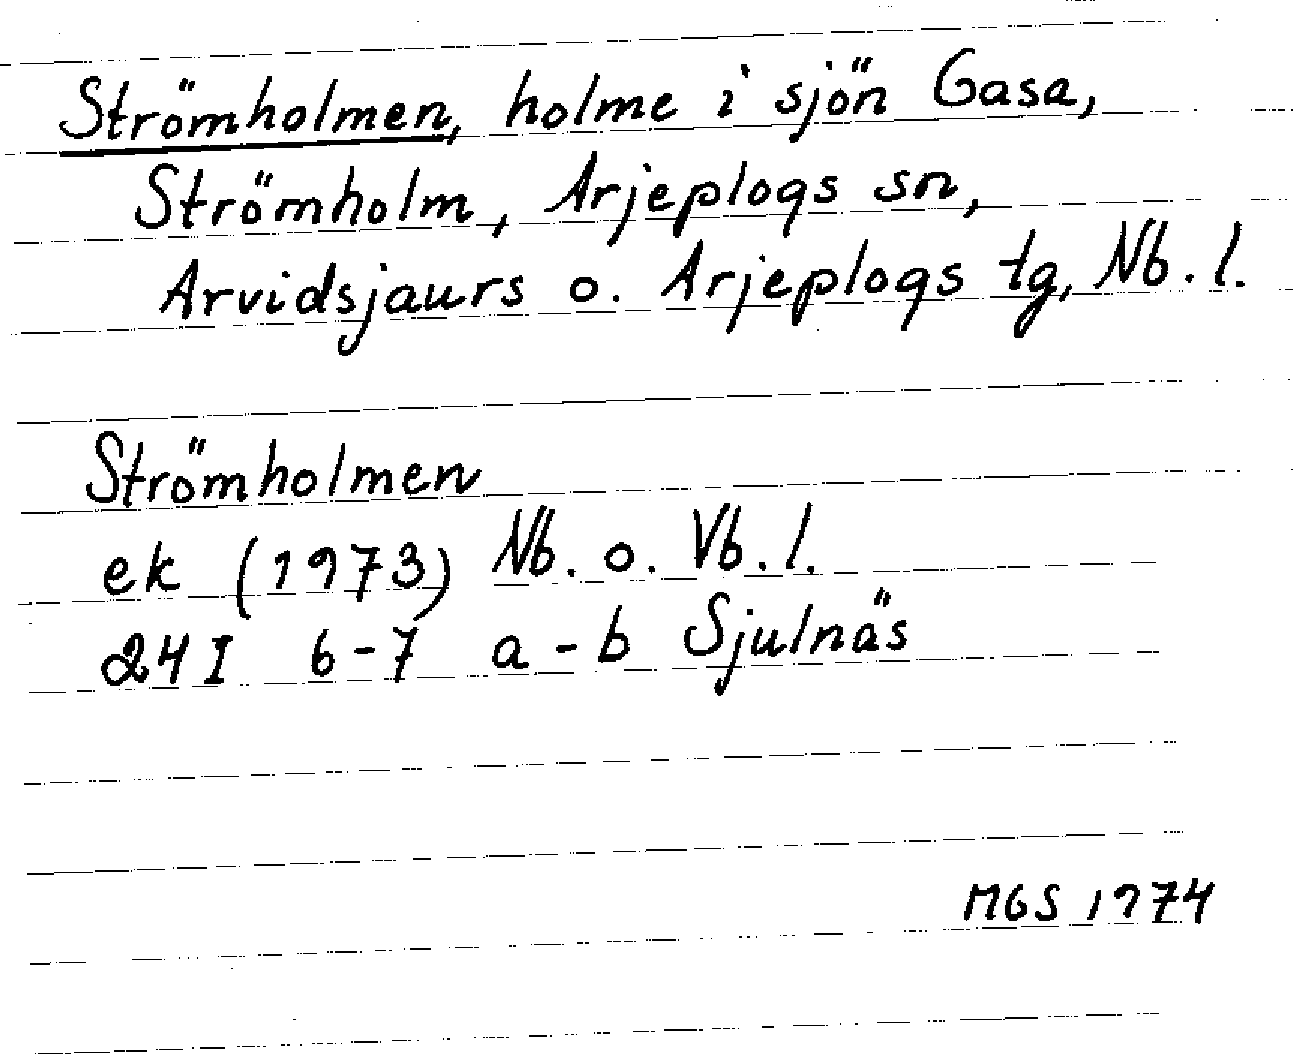 Strömholmen, holme i sjön Gasa,
Strömholm, Arjeplogs sn,
Arvidsjaurs o. Arjeplogs tg, Nb. l.
Strömholmen
ek (1973) Nb. o. Vb. l.
24I 6-7 a-b Sjulnäs
MGS 1974